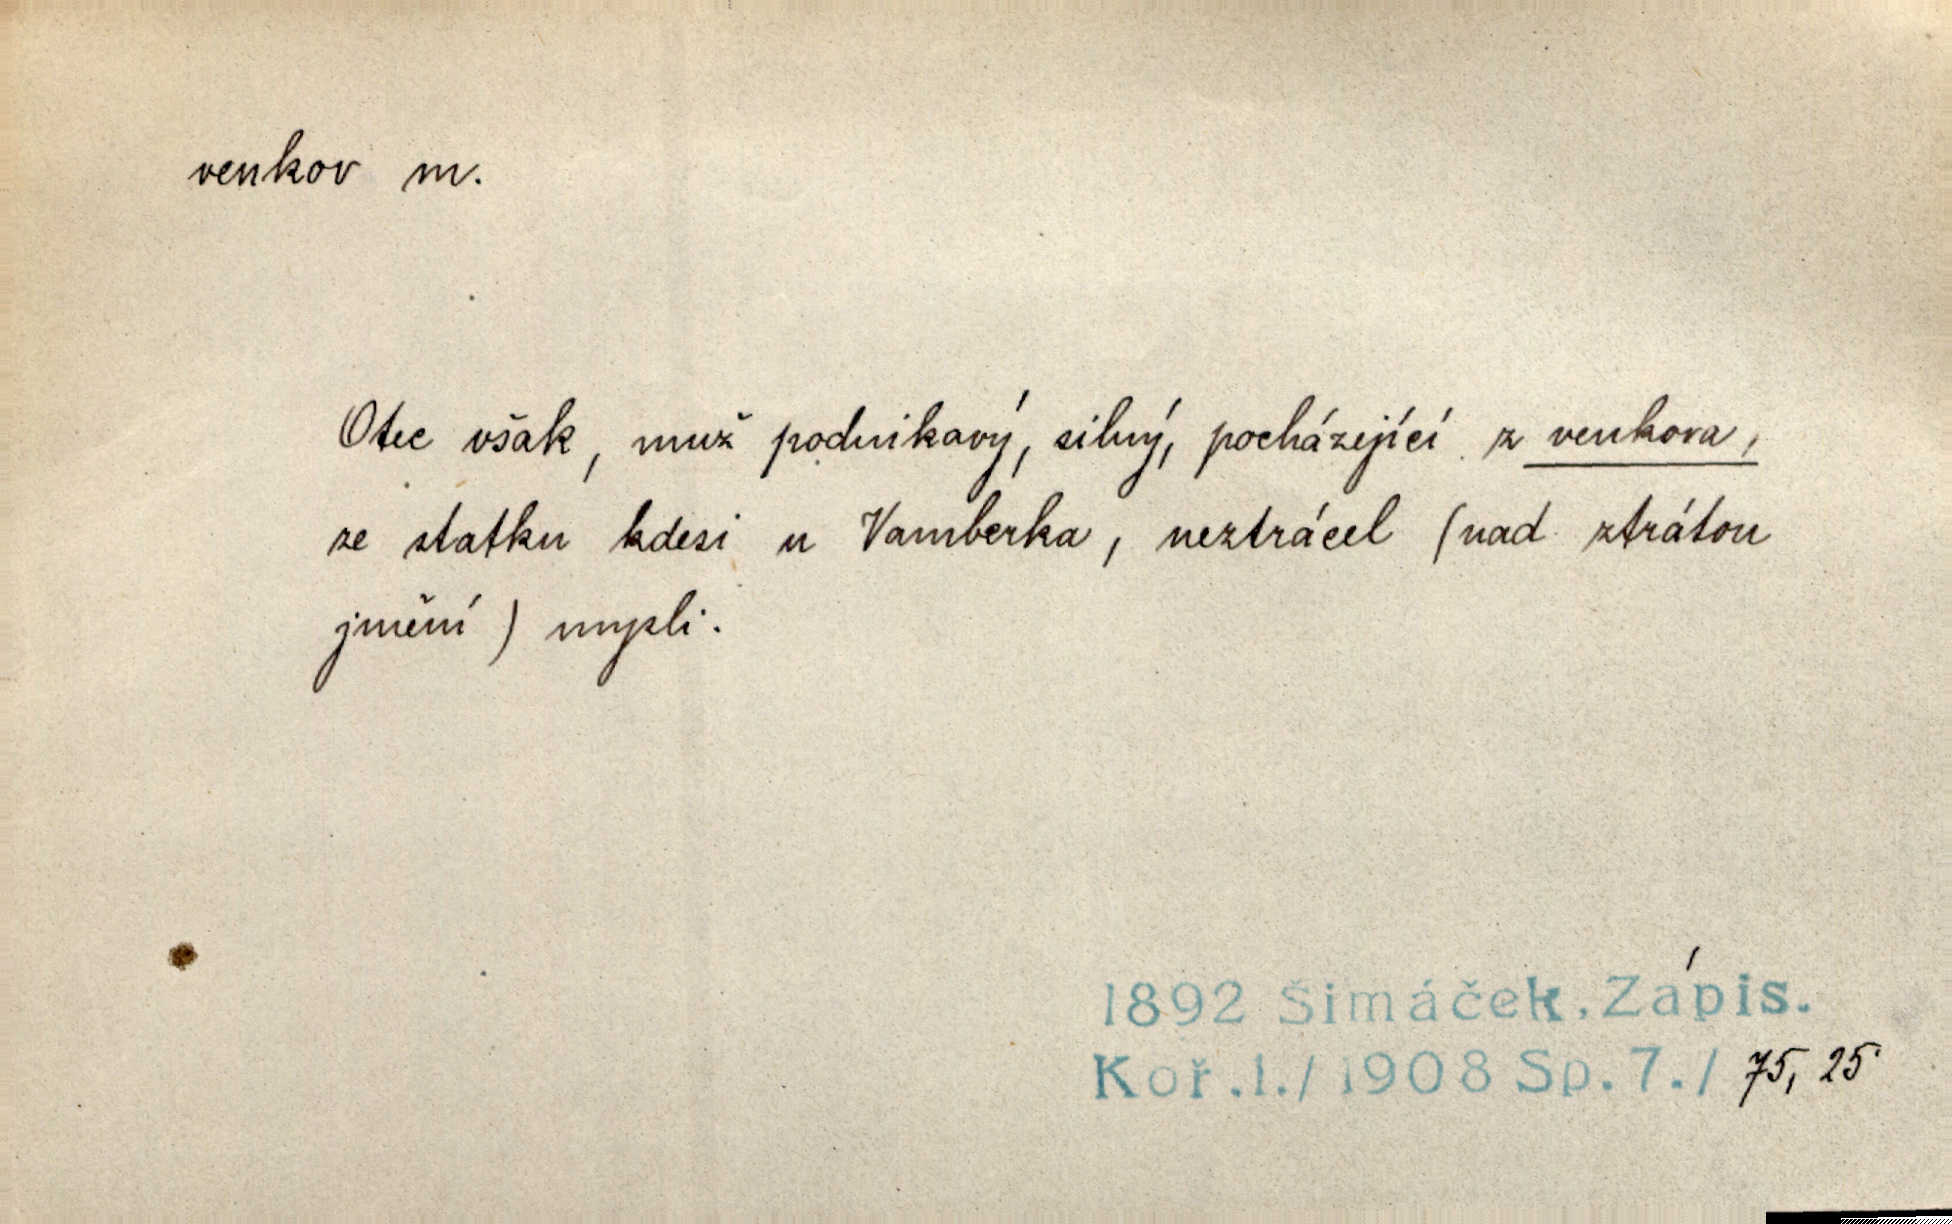 venkov m.
Otec však, muž podnikavý, silný, pocházející z venkova,
ze statku kdesi u Vamberka, neztrácel (nad ztrátou
jmění) mysli.
1892 Šimáček, Zápis.
Koř.1./1908 Sp.7./ 75, 25